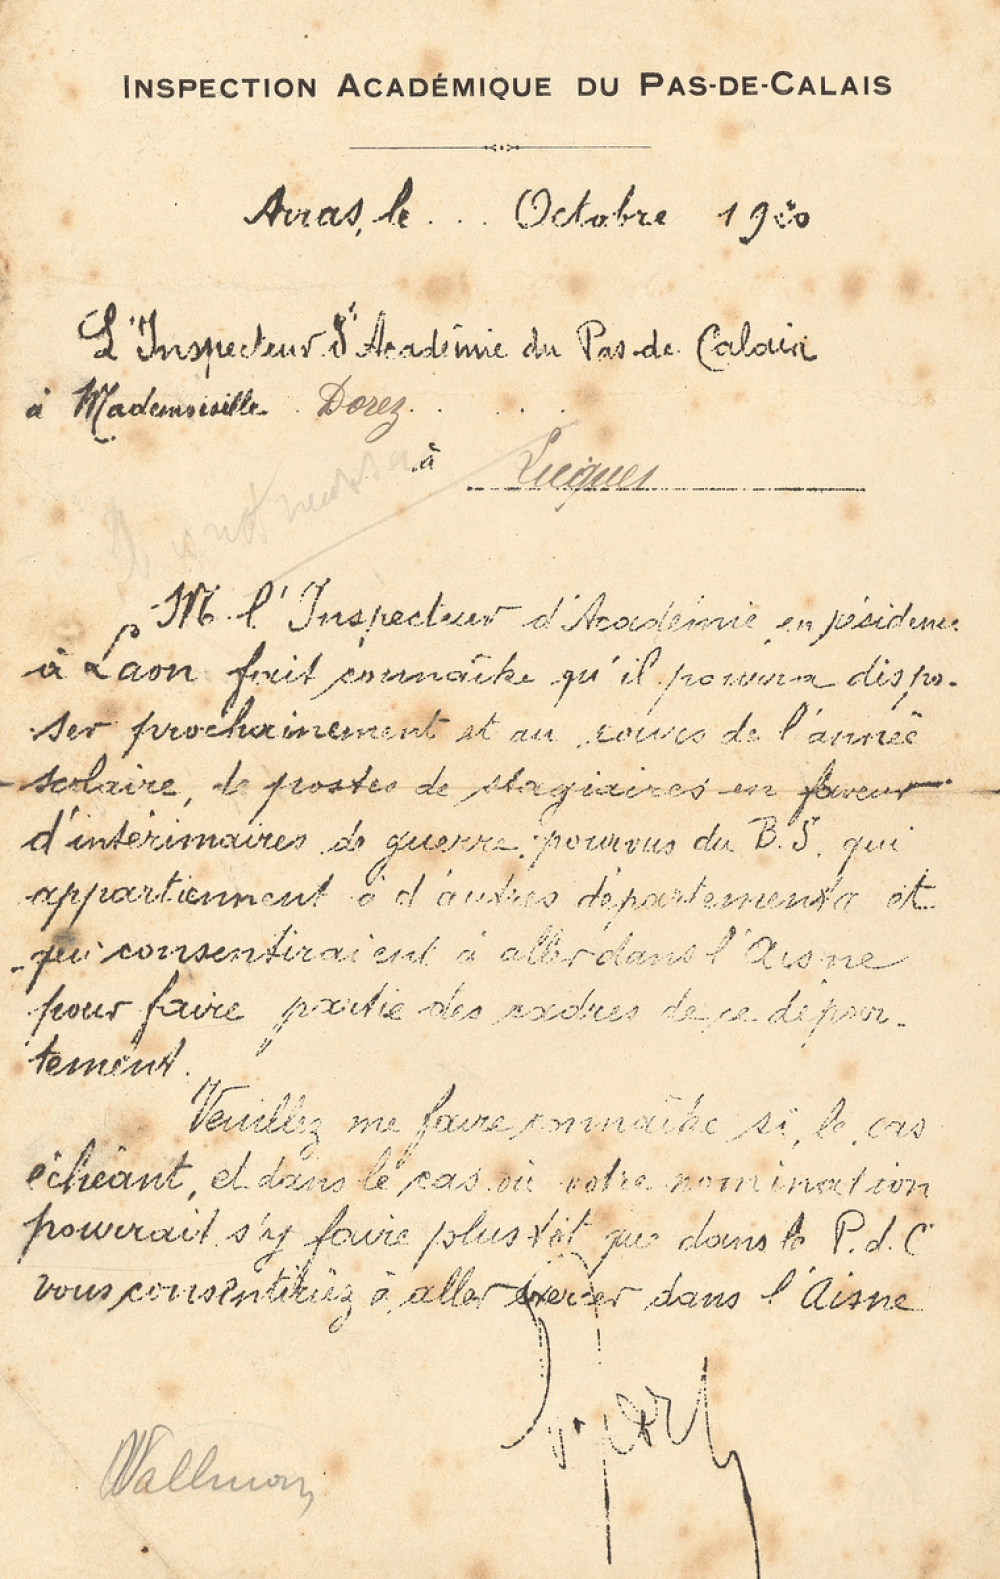 INSPECTION ACADÉMIQUE DU PAS-DE-CALAIS
Arras, le . . . Octobre 1920
L'Inspecteur d'Académie du Pas-de-Calais
à Mademoiselle Dorez
à
M. l'Inspecteur d'Académie en résidence
à Laon fait connaître qu'il pourra dispo-
ser prochainement et au cours de l'année
scolaire, de postes de stagiaires en faveur
d'intérimaires de guerre, pourvus du B.S. qui
appartiennent à d'autres départements et
qui consentiraient à aller dans l'Aisne
pour faire partie des cadres de ce dépar-
tement.
Veuillez me faire connaître si, le cas
échéant, et dans le cas où votre nomination
pourrait s'y faire plus tôt que dans le P.d.C
vous consentiriez à aller exercer dans l'Aisne